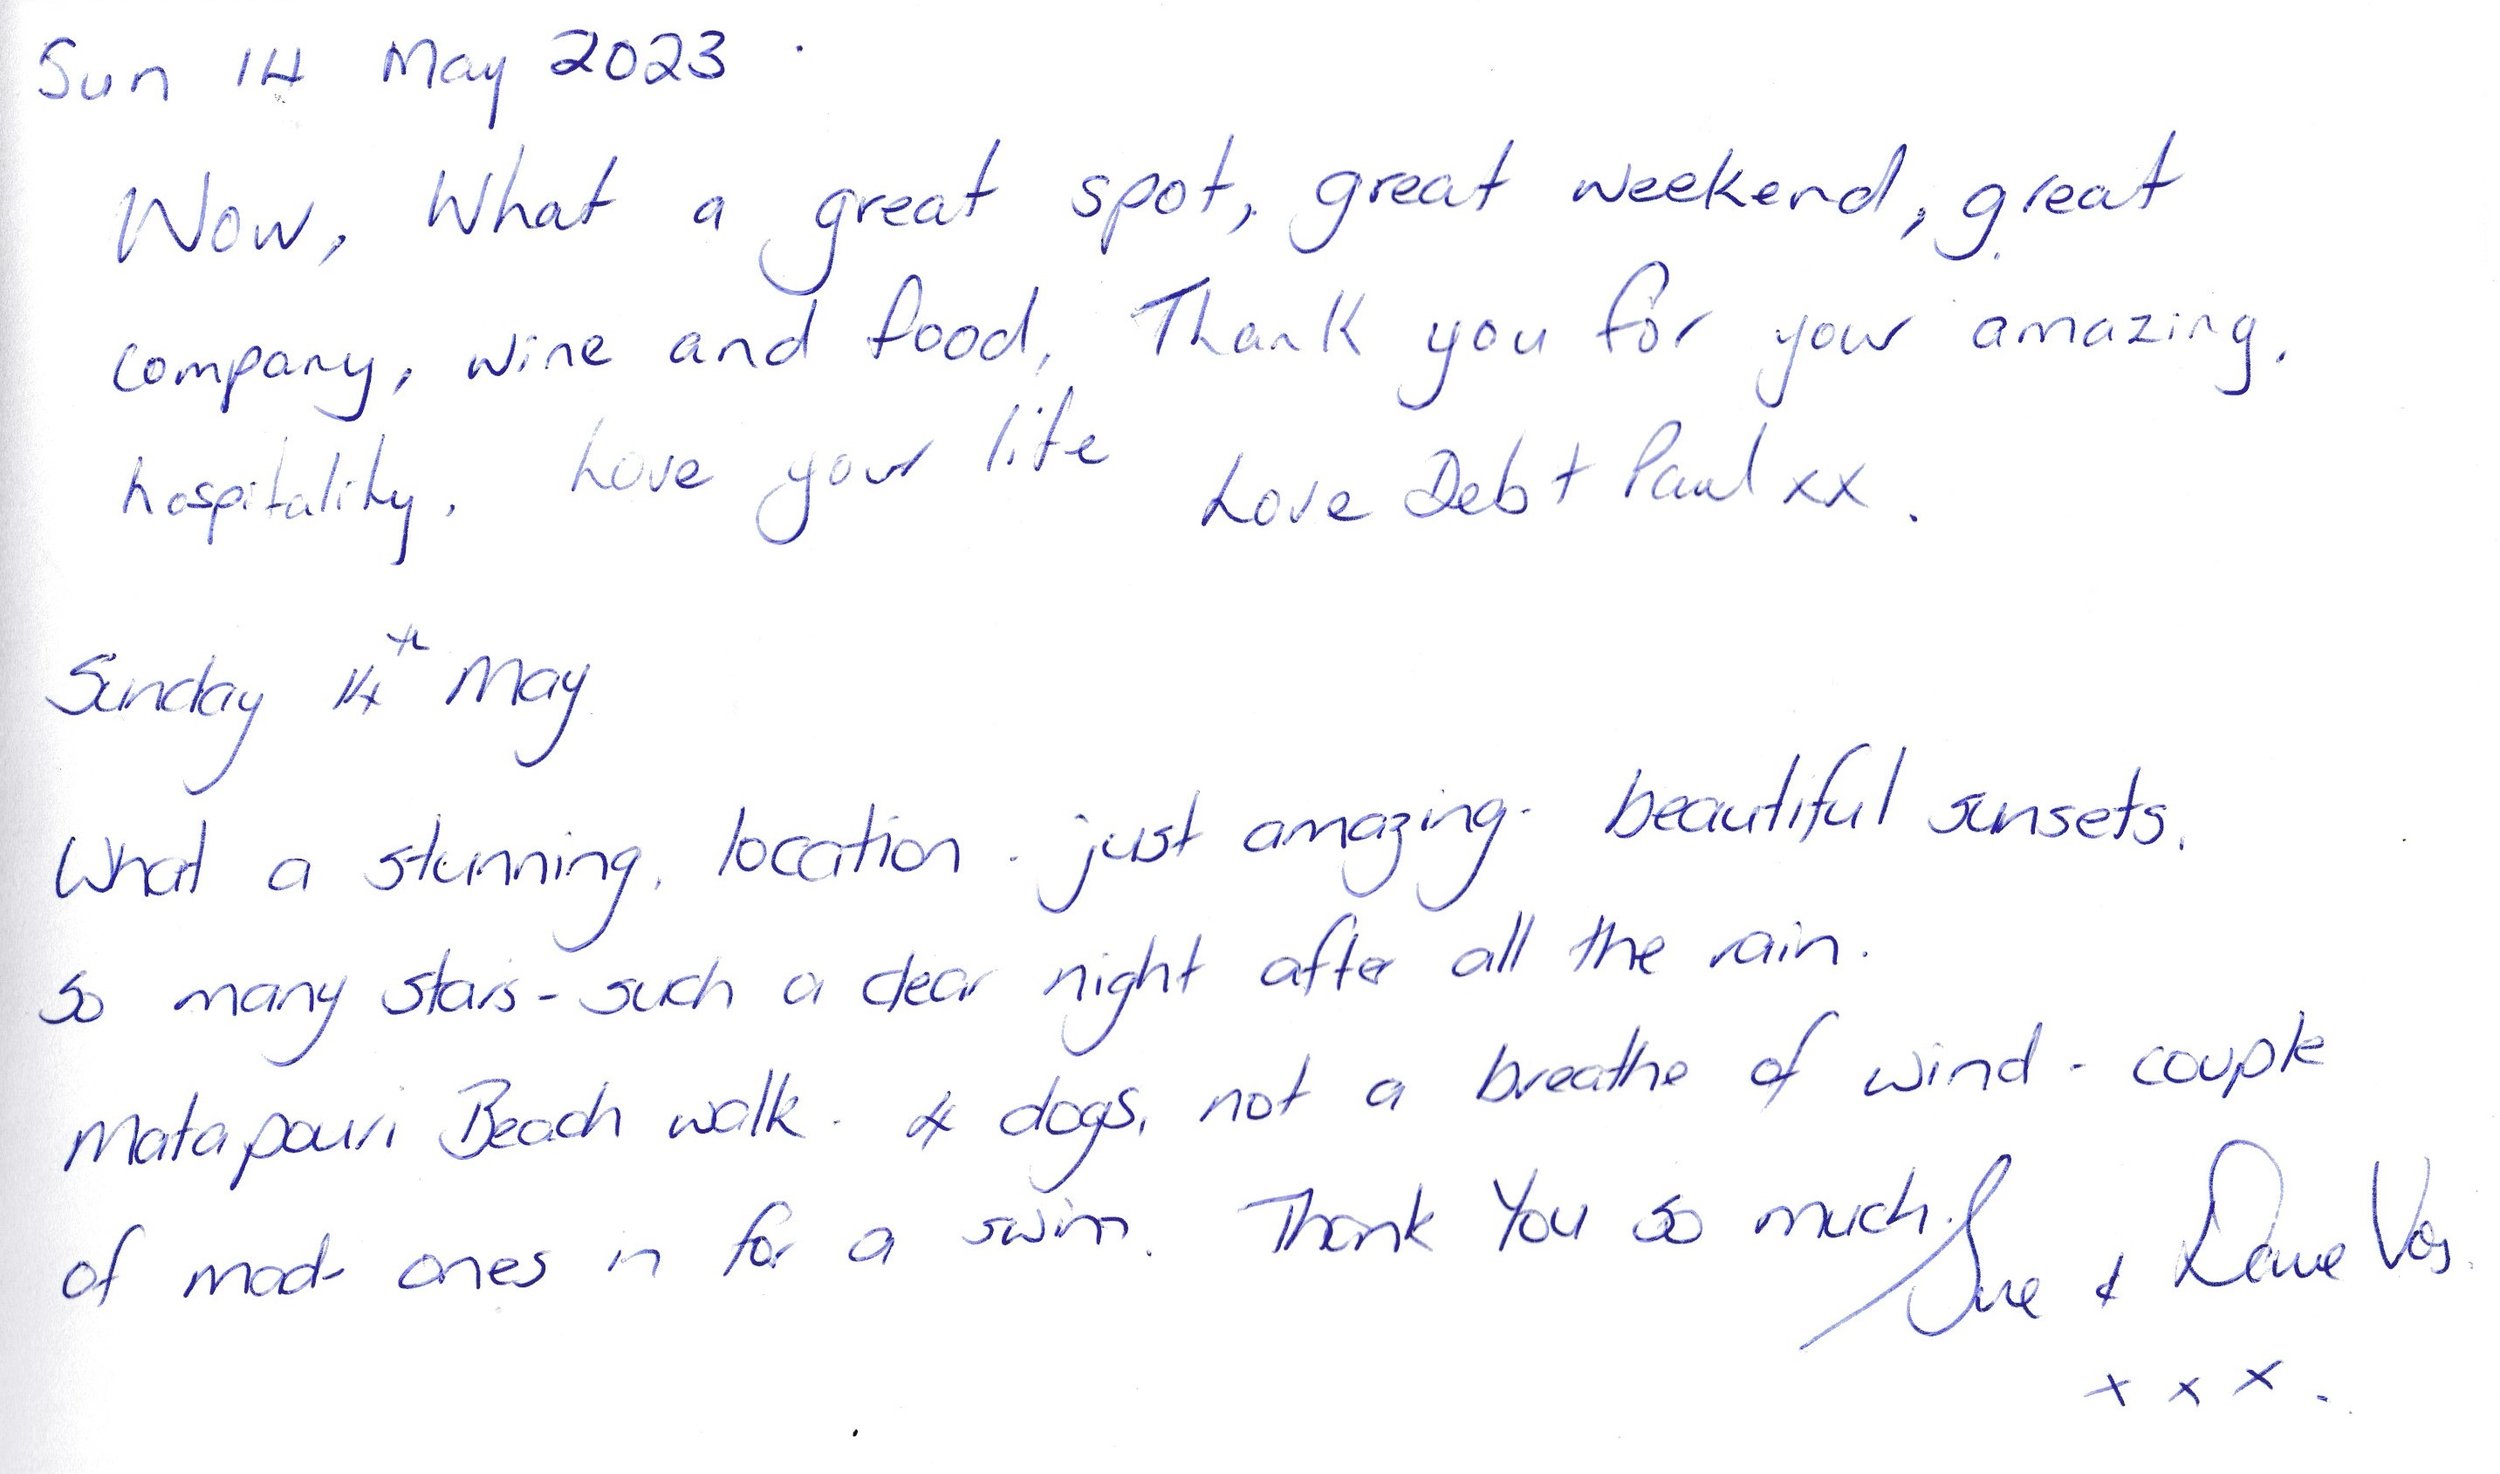 Sun 14 May 2023
Wow, What a great spot, great weekend, great
company, wine and food. Thank you for your amazing.
hospitality. Love your life Love Deb + Paul xx.
Sunday 14th May
What a stunning. location. just amazing. beautiful sunsets.
so many stars - such a clear night after all the rain.
Matapouri Beach walk. 4 dogs, not a breathe of wind - couple
of mad ones in for a swim. Thank You so much. Sue & Dave Vos.
x x x.